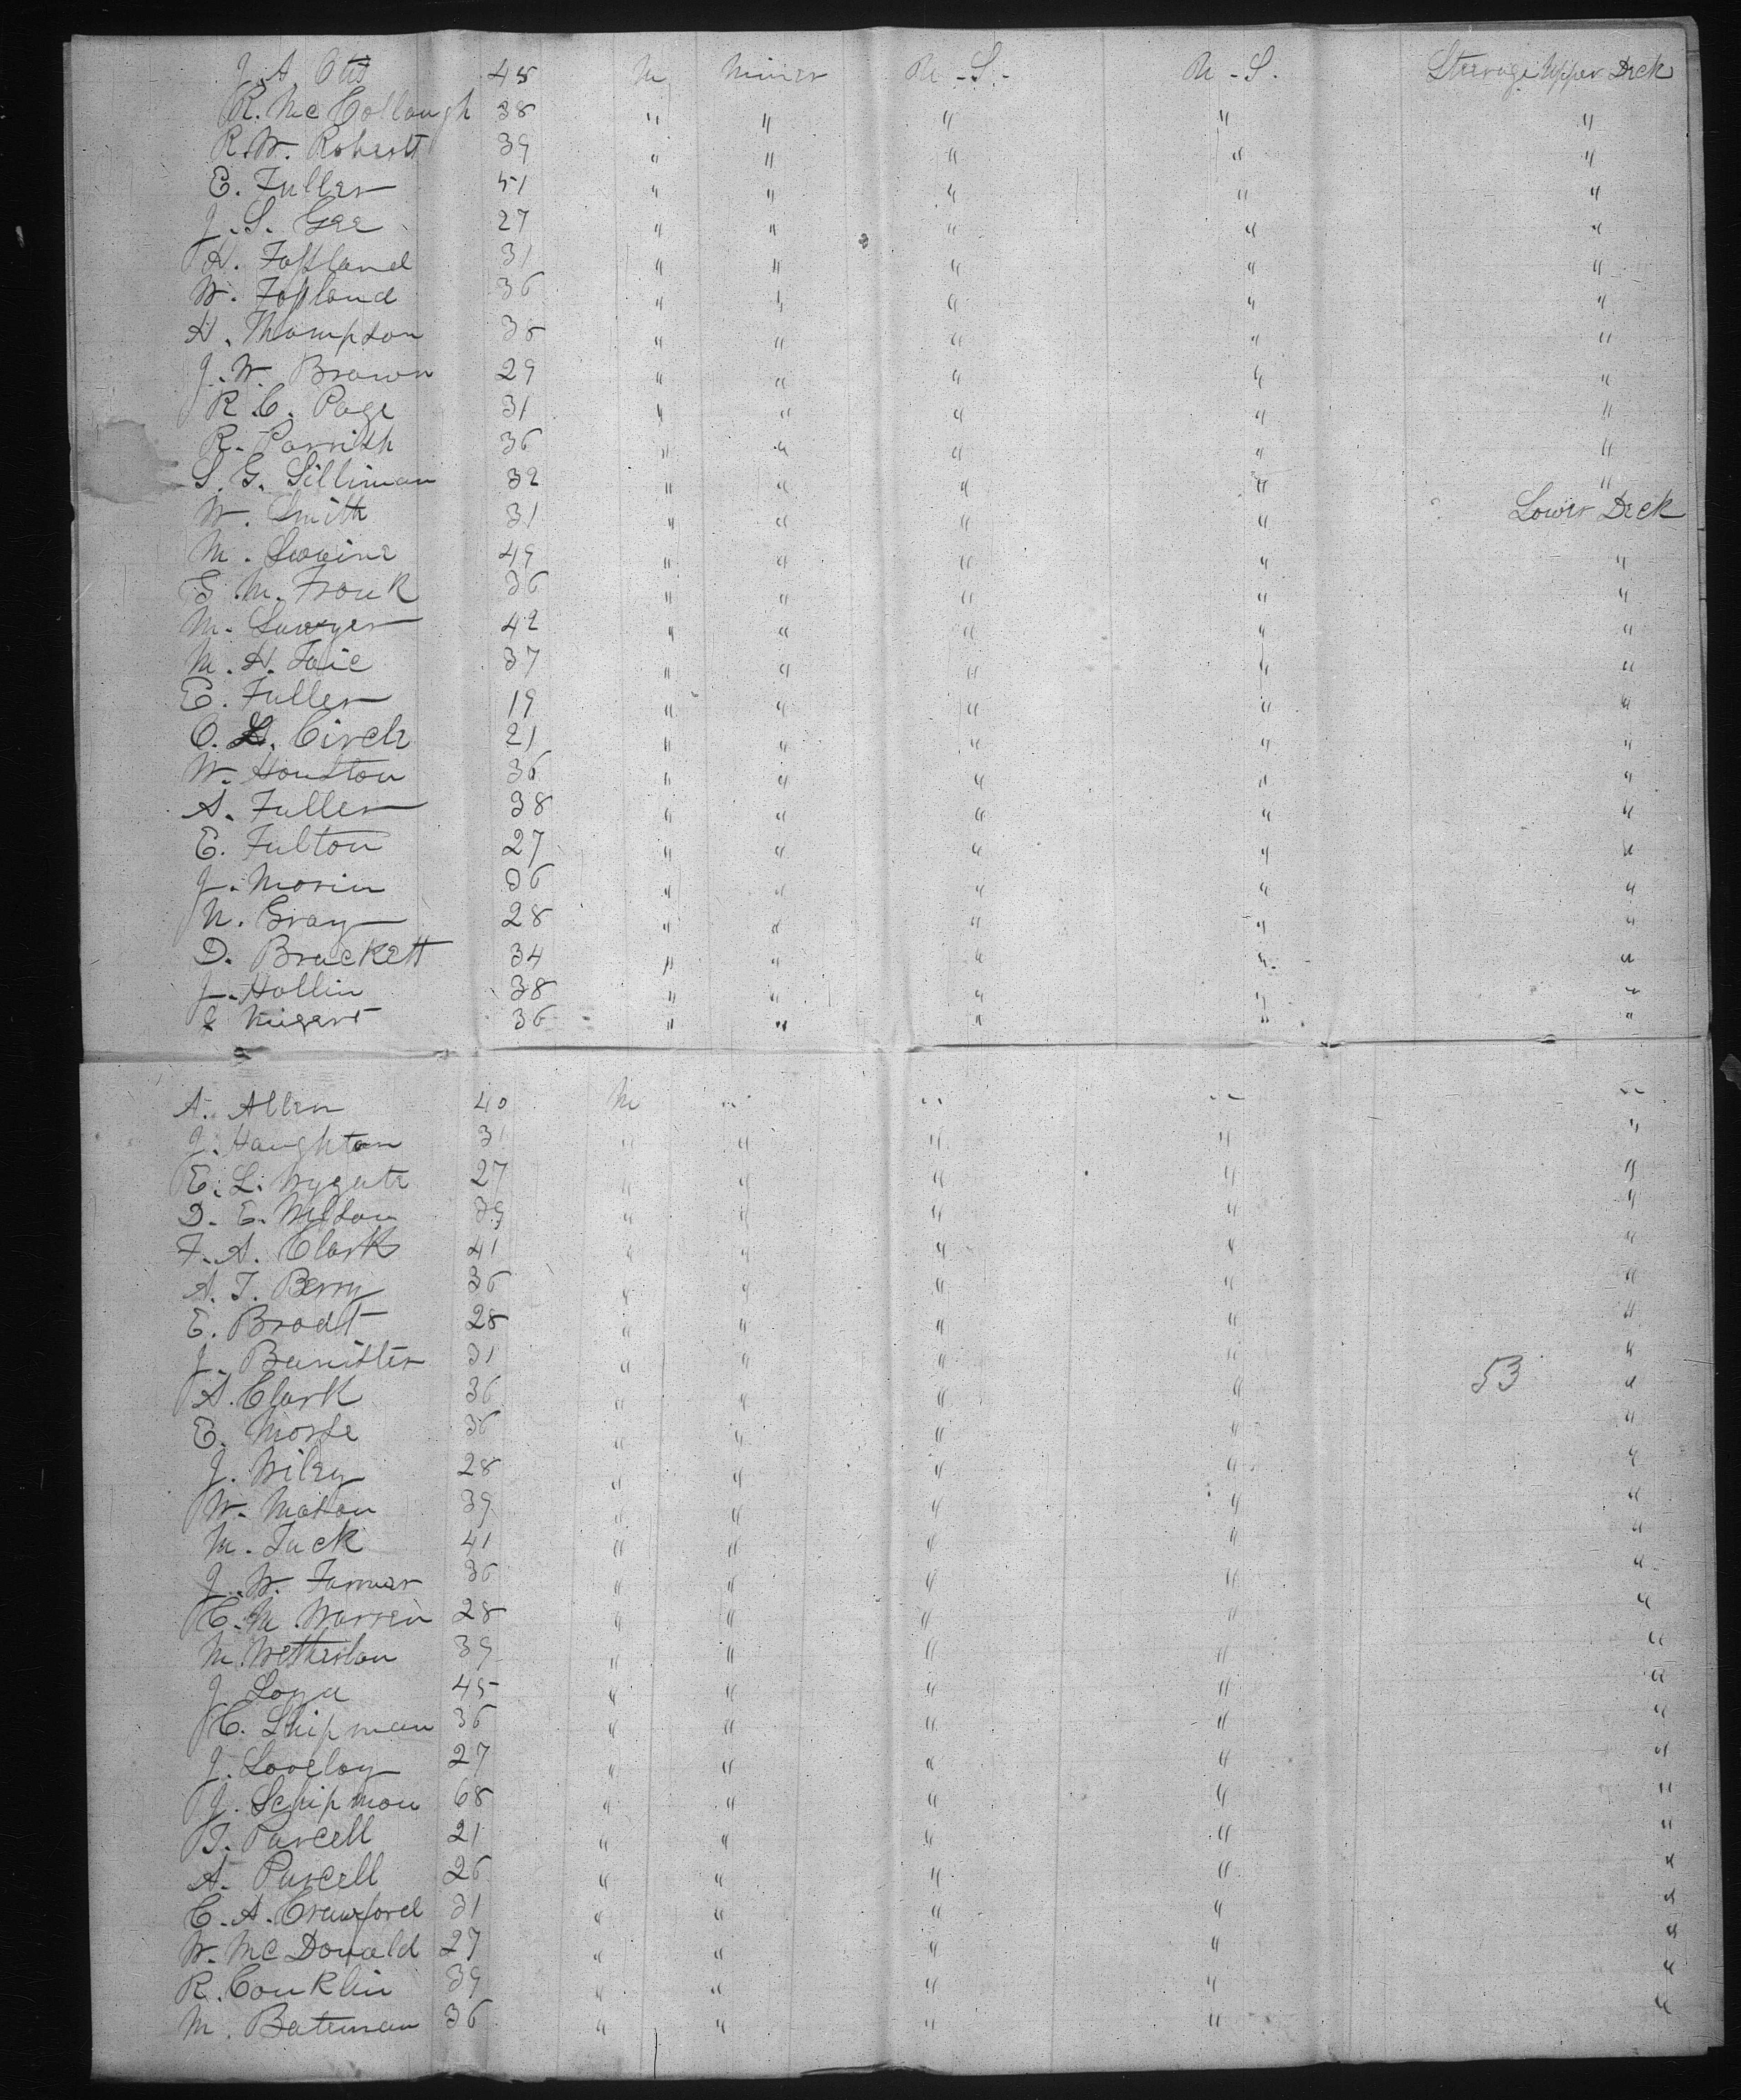 J. A. Otis 45 M Miner U-S- U-S. Steerage Upper Deck
R. Mc Collough 38 " " " " "
R. W. Robertt 39 " " " " "
E. Fuller 51 " " " " "
J. S. Gee 27 " " " " "
H. Fopland 31 " " " " "
W. Fopland 36 " " " " "
H. Thompson 35 " " " " "
J. W. Brown 29 " " " " "
R. C. Page 31 " " " " "
R. Parrish 36 " " " " "
S. G. Silliman 32 " " " " "
W. Smith 31 " " " " Lower Deck
M. Swaine 49 " " " " "
G. M. Frouk 36 " " " " "
M. Sawyer 42 " " " " "
M. H. Faie 37 " " " " "
E. Fuller 19 " " " " "
O. L. Circle 21 " " " " "
W. Houston 36 " " " " "
A. Fuller 38 " " " " "
E. Fulton 27 " " " " "
J. Morin 36 " " " " "
N. Gray 28 " " " " "
D. Brackett 34 " " " " "
J. Hollin 38 " " " " "
36 " " " " "
A. Allen 40 M " " " "
J. Haughton 31 " " " " "
E. L. Wygate 27 " " " " "
D. E. Wilson 39 " " " " "
F. A. Clark 41 " " " " "
A. T. Berry 36 " " " " "
E. Brodt 28 " " " " "
J. Banister 31 " " " " "
A. Clark 36 " " " 53 "
E. Morse 36 " " " " "
J. Wiley 28 " " " " "
W. Mason 39 " " " " "
M. Tuck 41 " " " " "
J. W. Farmer 36 " " " " "
C. M. Warren 28 " " " " "
M. Wetherlou 39 " " " " "
J. Lona 45 " " " " "
C. Shipman 36 " " " " "
J. Loveloy 27 " " " " "
J. Schipmon 68 " " " " "
T. Purcell 21 " " " " "
A. Purcell 26 " " " " "
C. A. Crawford 31 " " " " "
W. Mc Donald 27 " " " " "
R. Conklin 39 " " " " "
M. Bateman 36 " " " " "